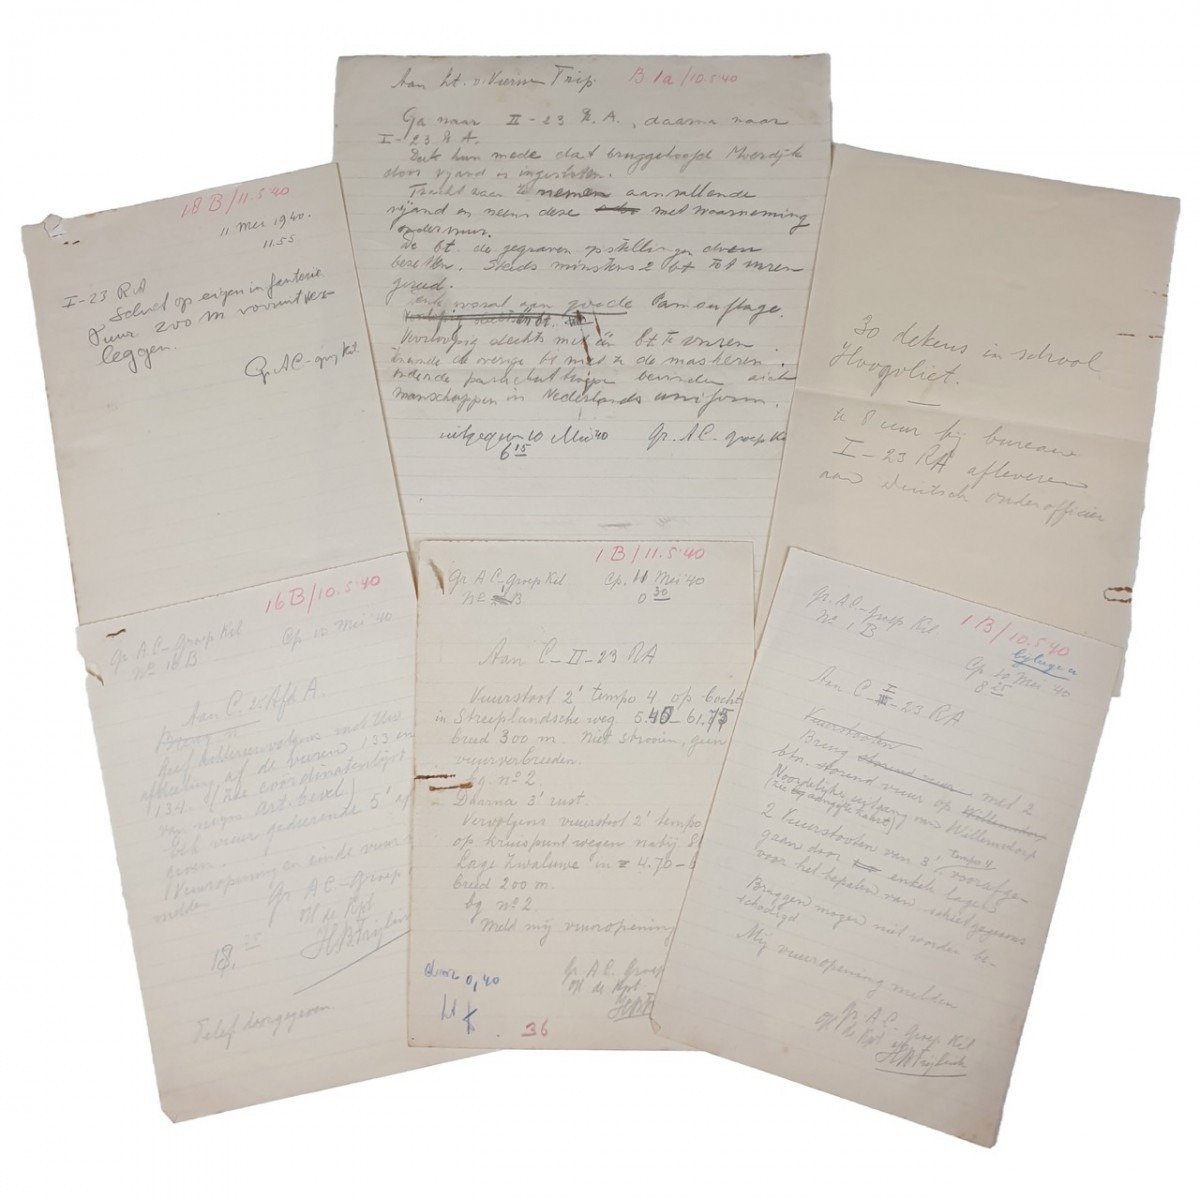 Aan Lt. v. Vierssen Trip. B 1a/10.5.40
Ga naar II-23 R.A., daarna naar
I-23 R.A.
Deel hun mede dat bruggehoofd Moerdijk
door vijand is ingesloten.
Tracht waar te nemen aanvallende
vijand en neem deze met waarneming
onder vuur.
De bt. de gegraven opstellingen doen
bezetten. Steeds minstens 2 bt tot vuren
gereed.
Denk vooral aan goede Camouflage.
Voorloopig slechts met één bt te vuren
teneinde de overige bt niet te demaskeren.
onder de parachuttroepen bevinden zich
manschappen in Nederlands uniform.
uitgegeven 10 Mei 40 Gr. A C. groep Kil
6 15
18 B/11.5.40
11 Mei 1940.
11.55
I-23 RA
Schiet op eigen infanterie
Vuur 200 m vooruit ver-
leggen.
Gr. AC-groep Kil.
30 dekens in school
Hoogvliet.
te 8 uur bij bureau
I-23 RA afleveren
aan Duitsch onderofficier
16 B/10.5.40
Gr A C-groep Kil Cp 10 Mei 40
No 16 B
Aan C. 2e Afd A.
Breng n
Geef achtereenvolgens met Uw
afdeeling af de vuren 133 en
134. (zie coördinatenlijst
van mijn art. bevel)
Elk vuur gedurende 5' af
geven.
Vuuropening en einde vuur
melden
Gr AC-Groep
o/l de Kpt
18.25
Telef doorgegeven.
1 B/11.5.40
Gr A C-groep Kil Cp. 11 Mei 40
No B 0 30
Aan C-II-23 RA
Vuurstoot 2' tempo 4 op bocht
in Streeplandsche weg 5.40-61.75
breed 300 m. Niet strooien, geen
vuurverbreeden.
bg no 2.
Daarna 3' rust.
Vervolgens vuurstoot 2' tempo
op kruispunt wegen nabij
Lage Zwaluwe in 4.70-6
breed 200 m.
bg no 2
Meld mij vuuropening
Gr. A C. Groep
o/l de Kpt.
door 0,40
Lt
36
1 B/10.5.40
bijlagen
Gr. A C-Groep Kil.
No 1 B
Cp 10 Mei 40
8 25
Aan C I-23 RA
Vuurstooten
Breng storend vuur met 2
btn. storend vuur op Willemsdorp
Noordelijke uitgang van Willemsdorp
(zie bijgevoegde kaart)
2 Vuurstooten van 3', tempo 4
voorafge-
gaan door enkele lagen
voor het bepalen van schietgegevens
Bruggen mogen niet worden be-
schadigd
Mij vuuropening melden
Gr. A C. Groep Kil
o/l de Kpt